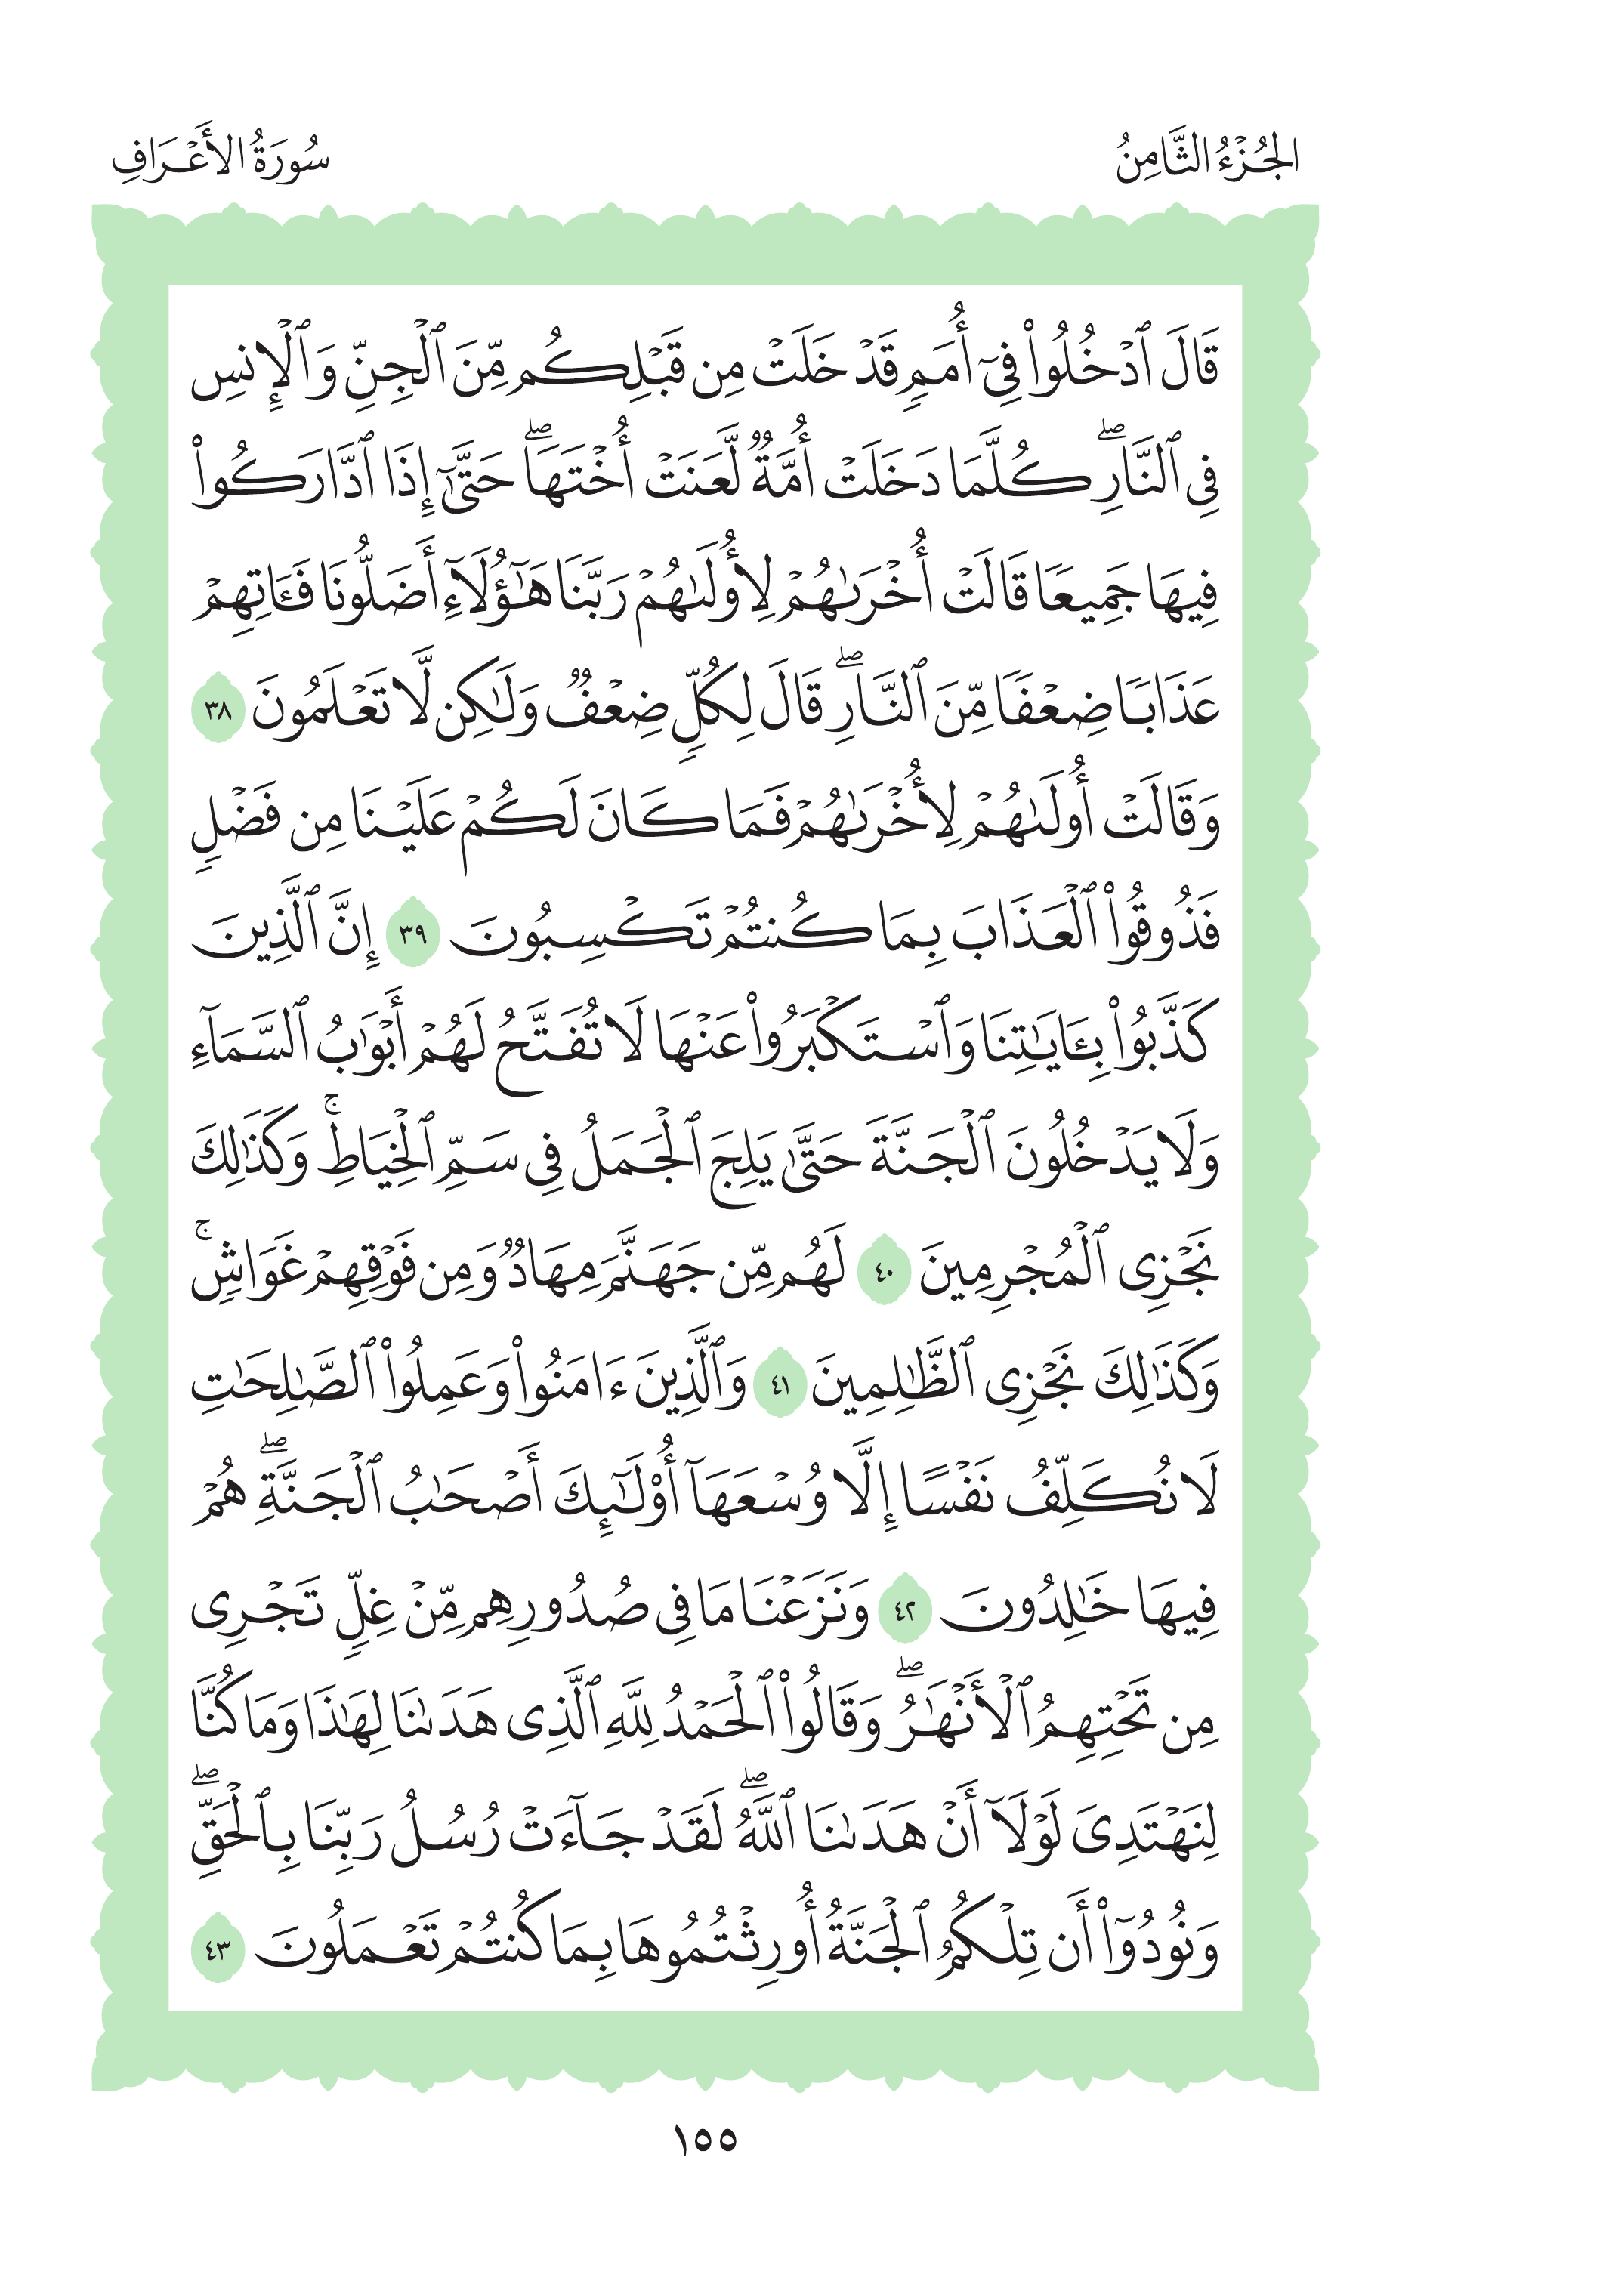 الجُزْءُ الثَّامِنُ
سُورَةُ الأَعْرَافِ
قَالَ ٱدْخُلُوا۟ فِىٓ أُمَمٍ قَدْ خَلَتْ مِن قَبْلِكُم مِّنَ ٱلْجِنِّ وَٱلْإِنسِ
فِى ٱلنَّارِ ۖ كُلَّمَا دَخَلَتْ أُمَّةٌ لَّعَنَتْ أُخْتَهَا ۖ حَتَّىٰٓ إِذَا ٱدَّارَكُوا۟
فِيهَا جَمِيعًا قَالَتْ أُخْرَىٰهُمْ لِأُولَىٰهُمْ رَبَّنَا هَـٰٓؤُلَآءِ أَضَلُّونَا فَـَٔاتِهِمْ
عَذَابًا ضِعْفًا مِّنَ ٱلنَّارِ ۖ قَالَ لِكُلٍّ ضِعْفٌ وَلَـٰكِن لَّا تَعْلَمُونَ ٣٨
وَقَالَتْ أُولَىٰهُمْ لِأُخْرَىٰهُمْ فَمَا كَانَ لَكُمْ عَلَيْنَا مِن فَضْلٍ
فَذُوقُوا۟ ٱلْعَذَابَ بِمَا كُنتُمْ تَكْسِبُونَ ٣٩ إِنَّ ٱلَّذِينَ
كَذَّبُوا۟ بِـَٔايَـٰتِنَا وَٱسْتَكْبَرُوا۟ عَنْهَا لَا تُفَتَّحُ لَهُمْ أَبْوَٰبُ ٱلسَّمَآءِ
وَلَا يَدْخُلُونَ ٱلْجَنَّةَ حَتَّىٰ يَلِجَ ٱلْجَمَلُ فِى سَمِّ ٱلْخِيَاطِ ۚ وَكَذَٰلِكَ
نَجْزِى ٱلْمُجْرِمِينَ ٤٠ لَهُم مِّن جَهَنَّمَ مِهَادٌ وَمِن فَوْقِهِمْ غَوَاشٍ ۚ
وَكَذَٰلِكَ نَجْزِى ٱلظَّـٰلِمِينَ ٤١ وَٱلَّذِينَ ءَامَنُوا۟ وَعَمِلُوا۟ ٱلصَّـٰلِحَـٰتِ
لَا نُكَلِّفُ نَفْسًا إِلَّا وُسْعَهَآ أُو۟لَـٰٓئِكَ أَصْحَـٰبُ ٱلْجَنَّةِ ۖ هُمْ
فِيهَا خَـٰلِدُونَ ٤٢ وَنَزَعْنَا مَا فِى صُدُورِهِم مِّنْ غِلٍّ تَجْرِى
مِن تَحْتِهِمُ ٱلْأَنْهَـٰرُ ۖ وَقَالُوا۟ ٱلْحَمْدُ لِلَّهِ ٱلَّذِى هَدَىٰنَا لِهَـٰذَا وَمَا كُنَّا
لِنَهْتَدِىَ لَوْلَآ أَنْ هَدَىٰنَا ٱللَّهُ ۖ لَقَدْ جَآءَتْ رُسُلُ رَبِّنَا بِٱلْحَقِّ ۖ
وَنُودُوٓا۟ أَن تِلْكُمُ ٱلْجَنَّةُ أُورِثْتُمُوهَا بِمَا كُنتُمْ تَعْمَلُونَ ٤٣
١٥٥